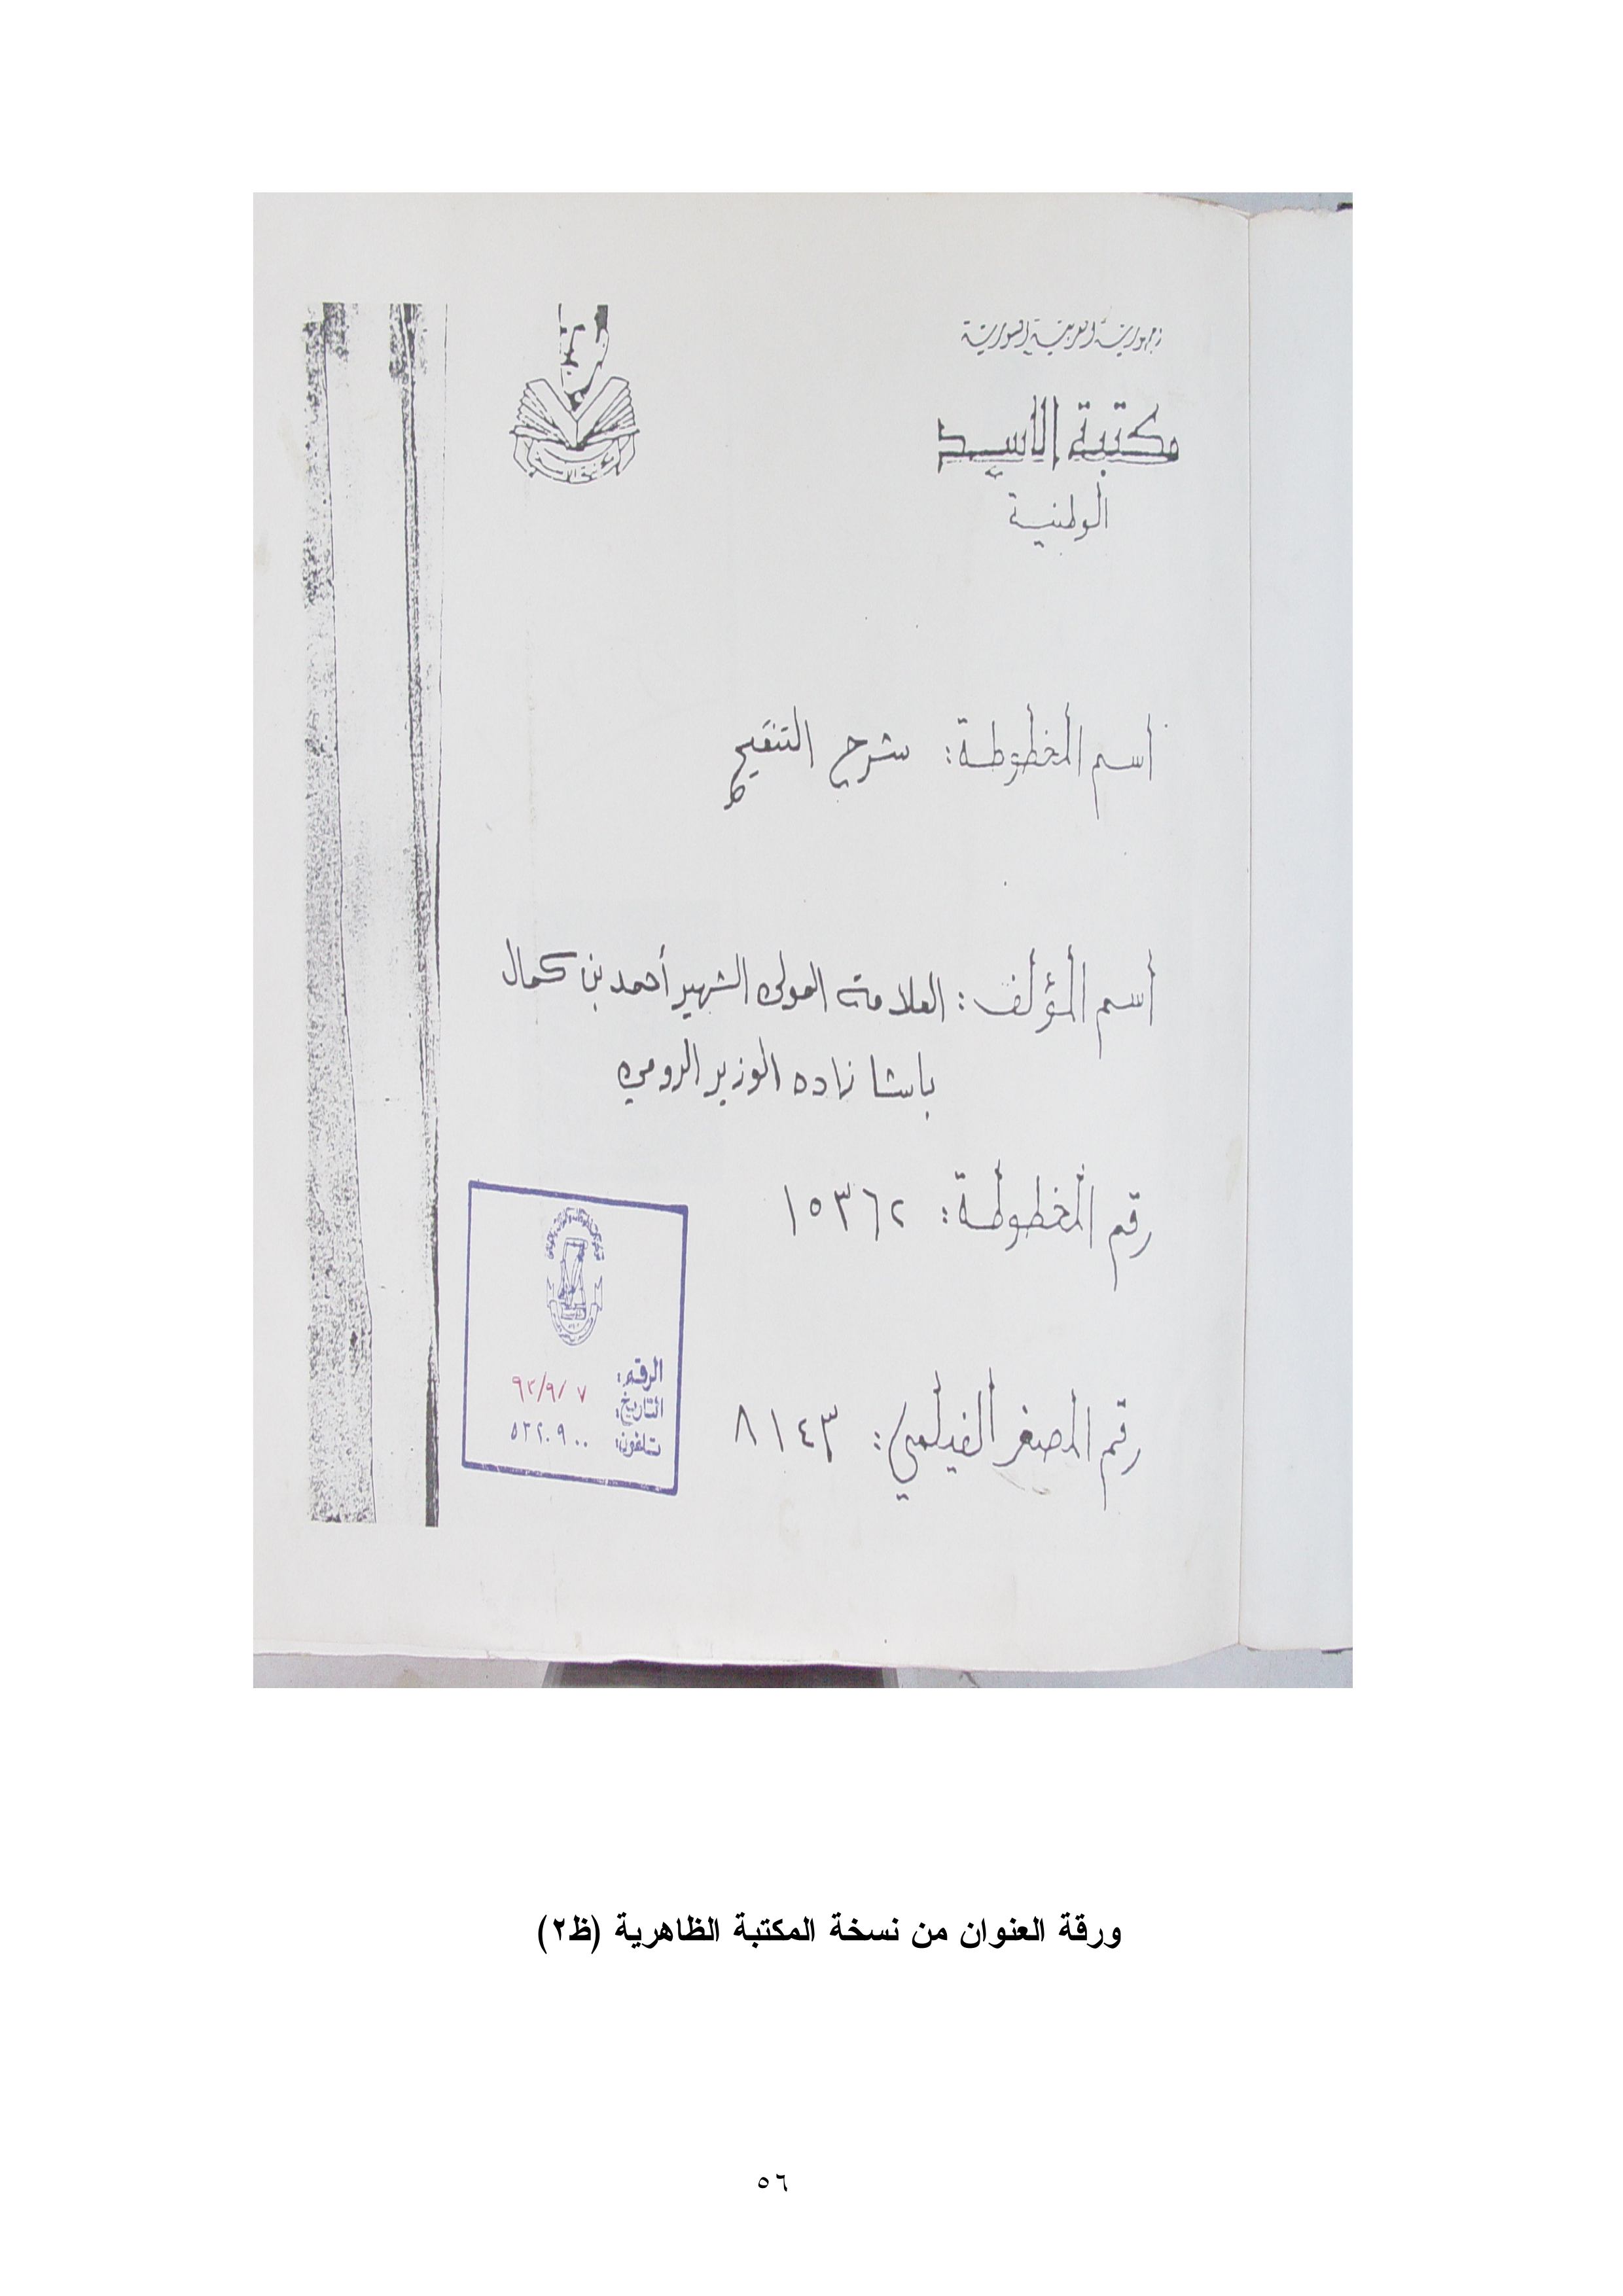 جمهورية العربية السورية
مكتبة الأسد
الوطنية
اسم المخطوطة: شرح التنقيح
اسم المؤلف: العلامة المولى الشهير أحمد بن كمال
باشا زاده الوزير الرومي
رقم المخطوطة: ١٥٣٦٢
الرقم:
التاريخ: ٩٢/٩/٧
تلفون: ٥٣٢٠٩٠٠
رقم المصغر الفيلمي: ٨١٤٣
ورقة العنوان من نسخة المكتبة الظاهرية (ظ٢)
٥٦